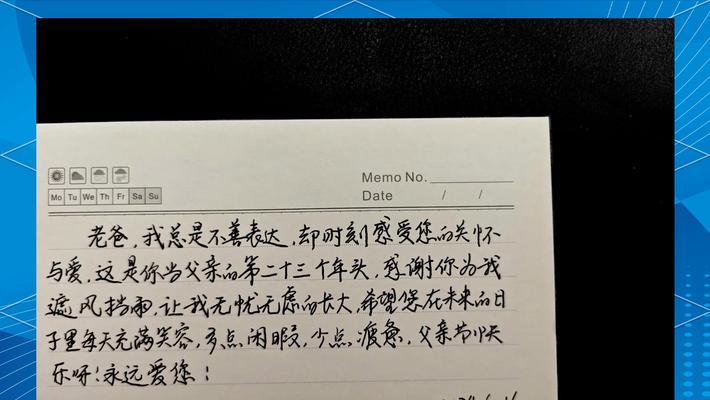 Memo No.
Mo Tu We Th Fr Sa Su
Date / /
老爸，我总是不善表达，却时刻感受您的关怀
与爱，这是你当父亲的第二十三个年头，感谢你为我
遮风挡雨，让我无忧无虑的长大，希望您在未来的日
子里每天充满笑容，多点闲暇，少点疲惫，父亲节快
乐呀！永远爱您！